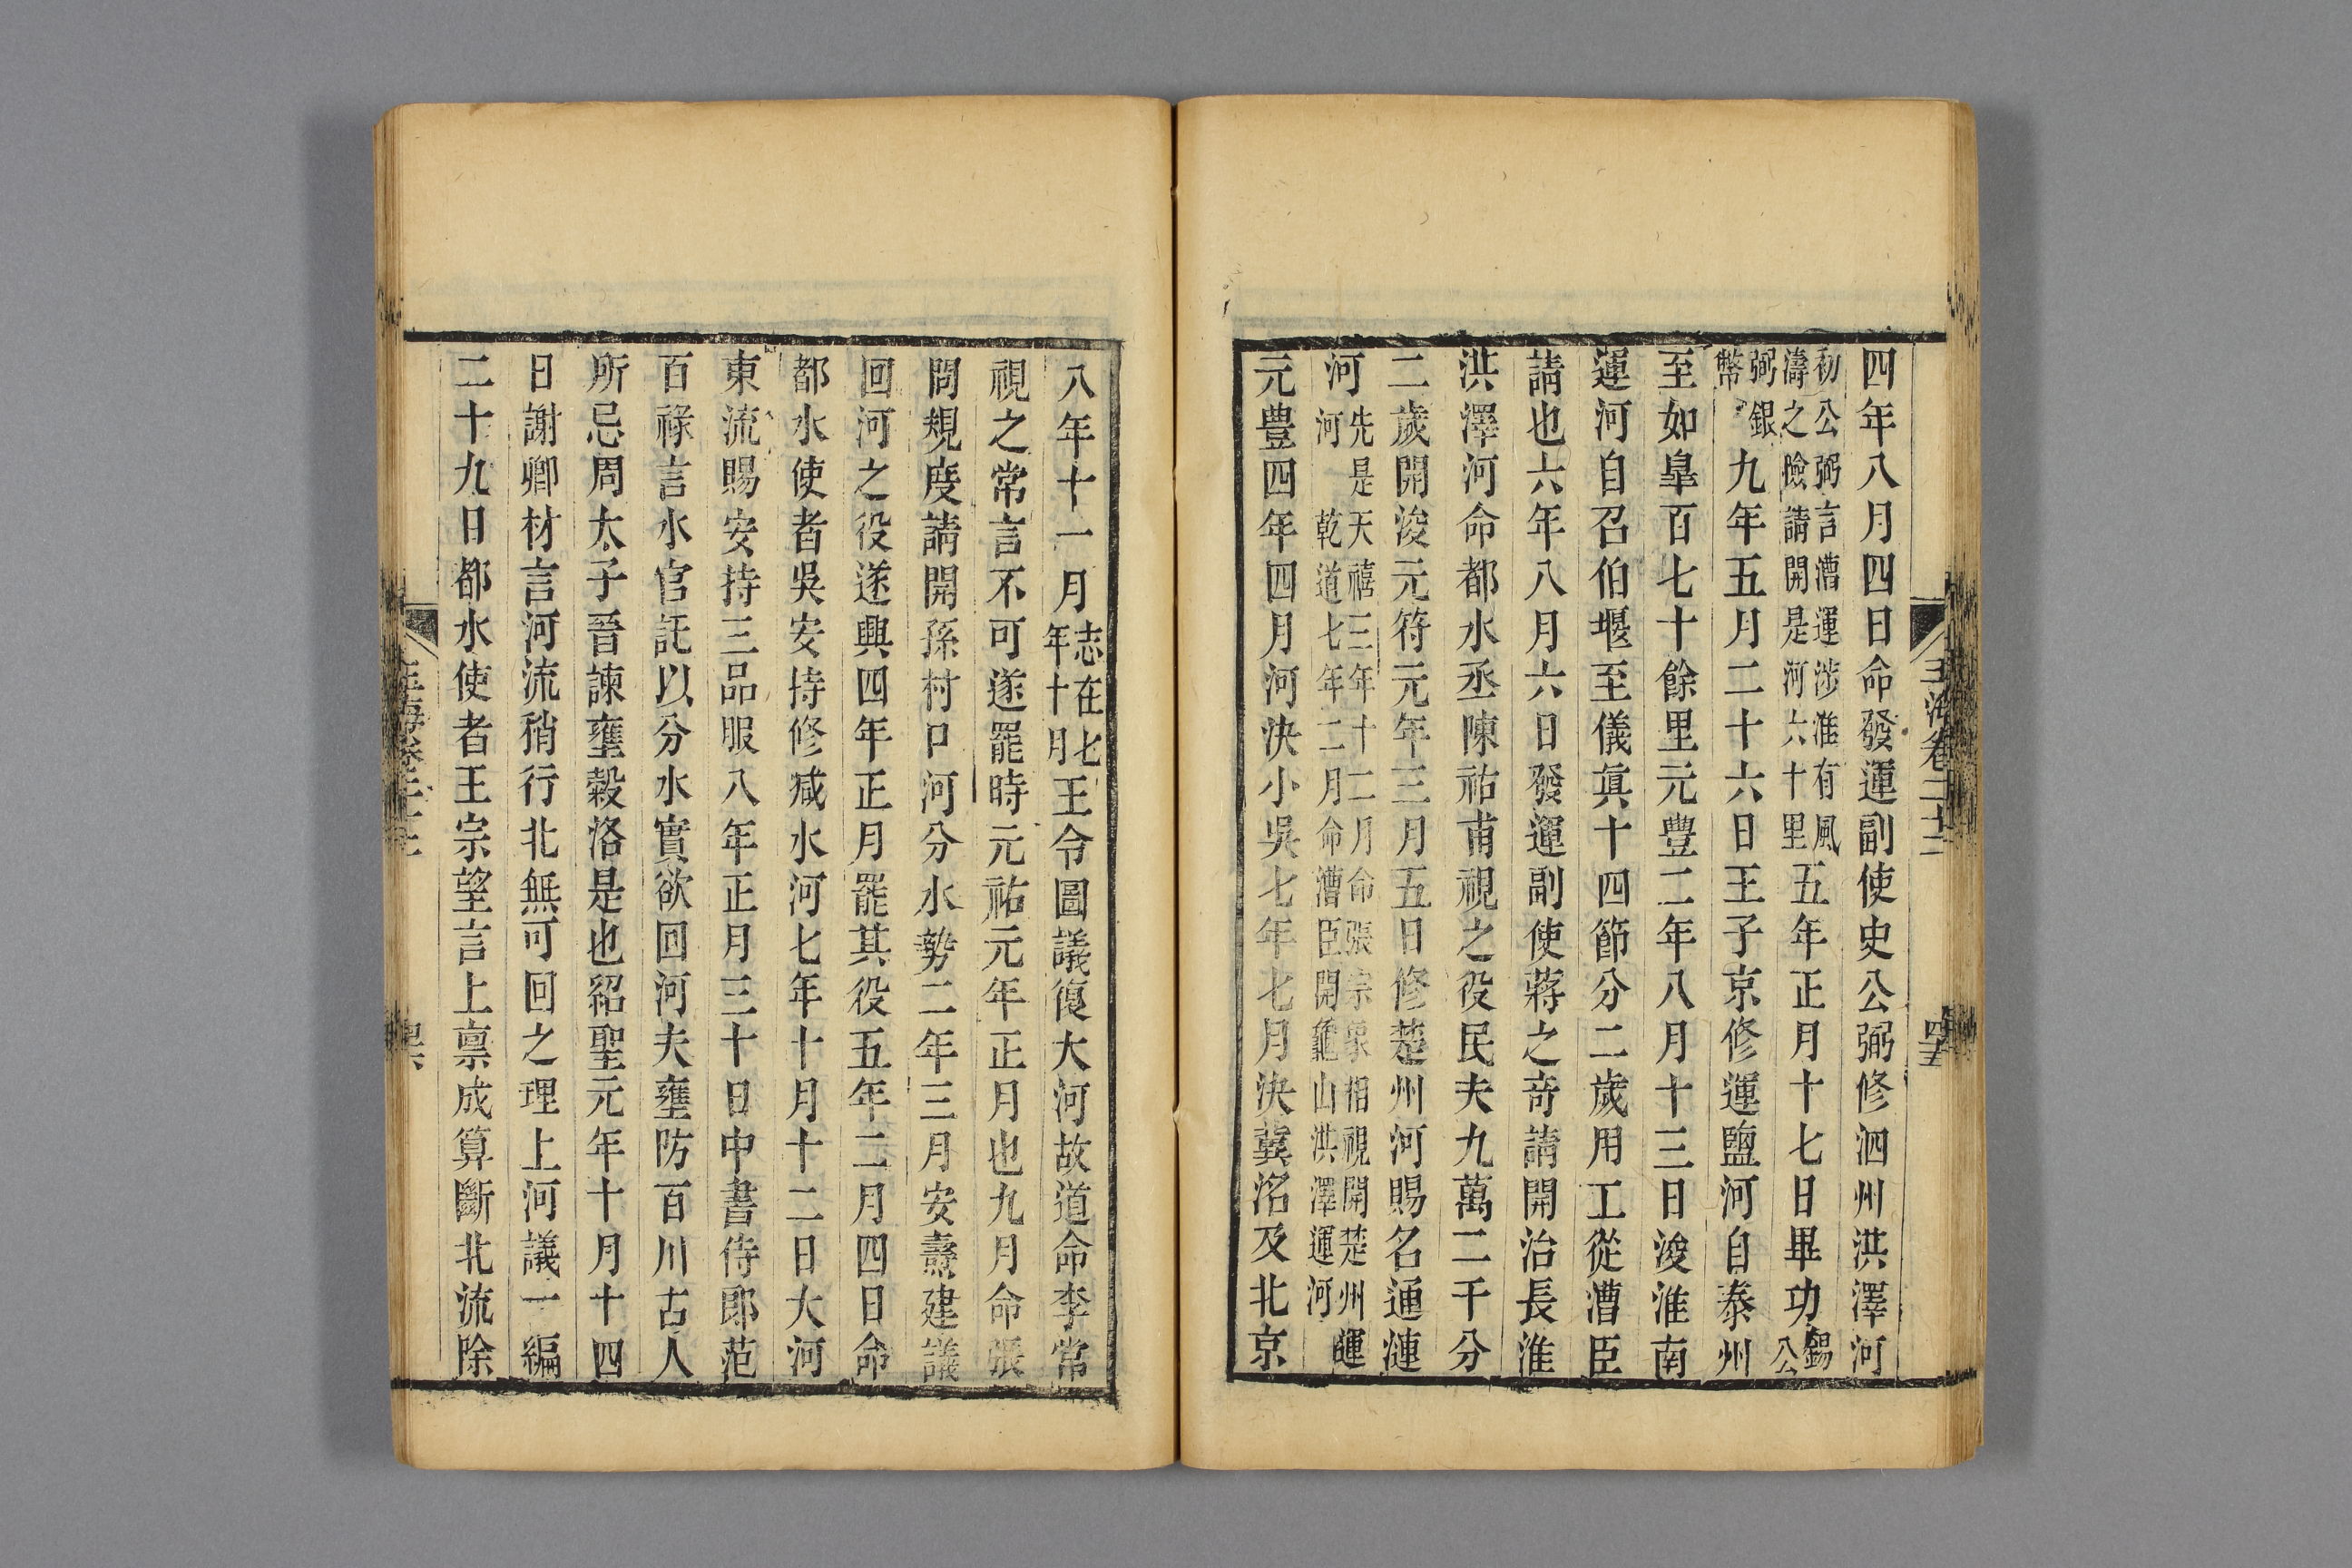 四年八月四日命發運副使史公弼修泗州洪澤河
初公弼言漕運涉淮有風
濤之險請開是河六十里
五年正月十七日畢功
錫公
弼銀
幣
九年五月二十六日王子京修運鹽河自泰州
至如皐百七十餘里元豊二年八月十三日浚淮南
運河自召伯堰至儀眞十四節分二歲用工從漕臣
請也六年八月六日發運副使蔣之奇請開治長淮
洪澤河命都水丞陳祐甫視之役民夫九萬二千分
二歲開浚元符元年三月五日修楚州河賜名通漣
河
先是天禧三年十二月命張宗象相視開楚州運
河 乾道七年二月命漕臣開龜山洪澤運河
元豊四年四月河決小吳七年七月決冀洺及北京
玉海卷二十二
四十五
八年十一月
志在七
年十月
王令圖議復大河故道命李常
視之常言不可遂罷時元祐元年正月也九月命張
問規度請開孫村口河分水勢二年三月安燾建議
回河之役遂興四年正月罷其役五年二月四日命
都水使者吳安持修減水河七年十月十二日大河
東流賜安持三品服八年正月三十日中書侍郎范
百祿言水官託以分水實欲回河夫壅防百川古人
所忌周太子晉諫壅穀洛是也紹聖元年十月十四
日謝卿材言河流稍行北無可回之理上河議一編
二十九日都水使者王宗望言上禀成算斷北流除